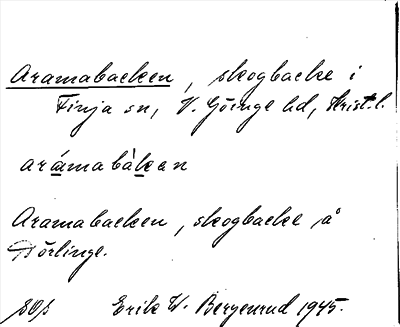 Aramabacken, skogbacke i
Finja sn, V. Göinge hd, Krist.l.
aráma bàkan
Aramabacken, skogbacke å
Dörlinge.
Erik W. Bergenrud 1945.